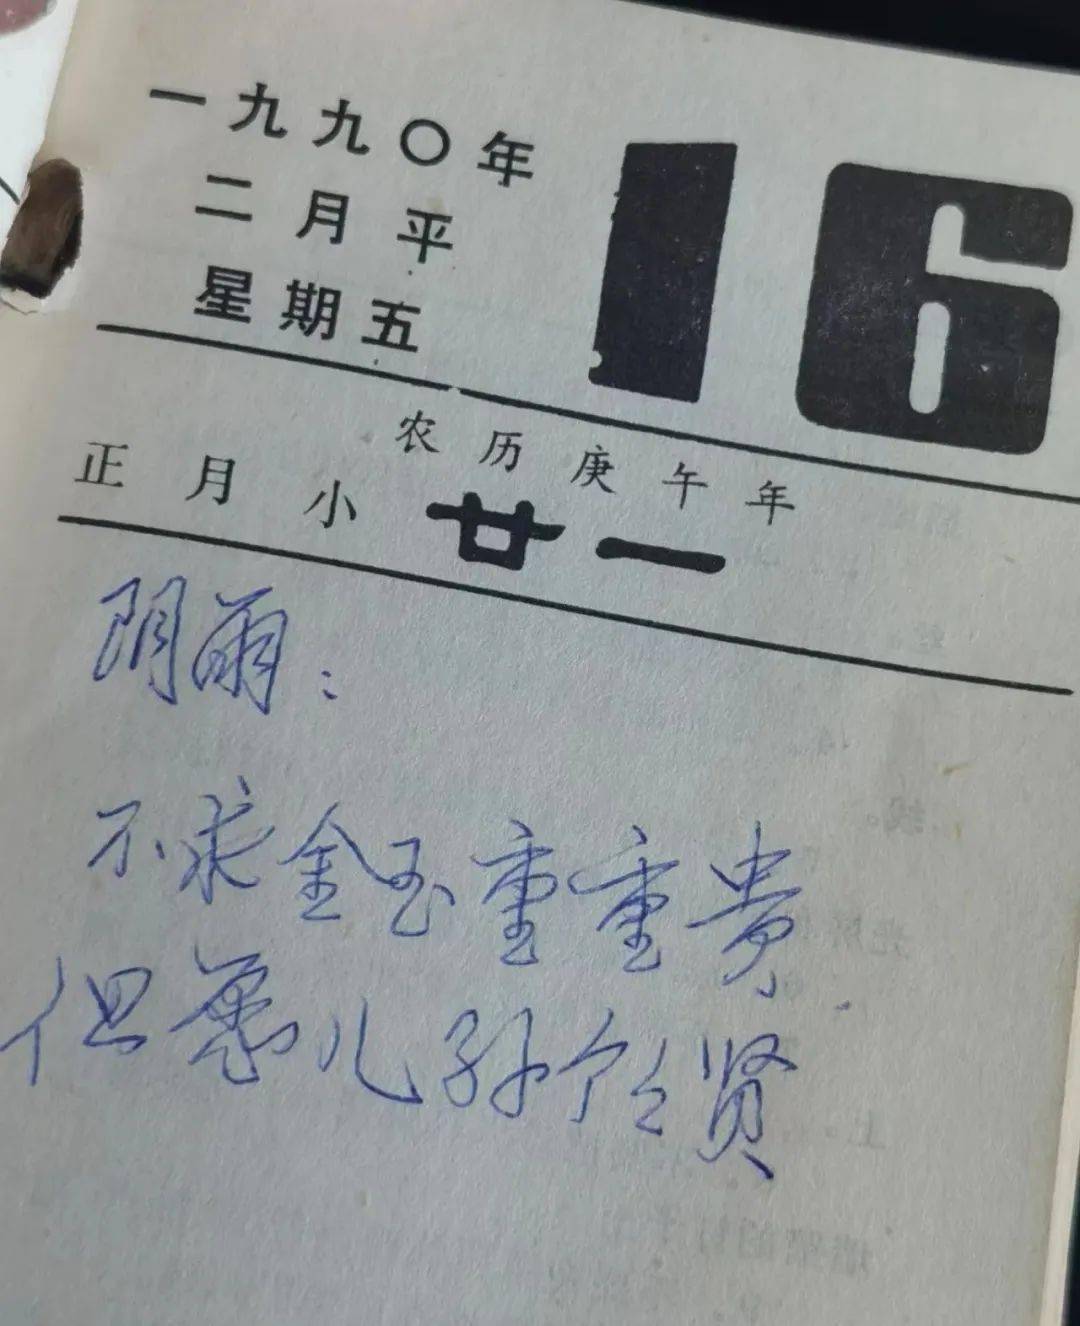 一九九〇年
二月平
星期五
16
农历庚午年
正月小
廿一
阴雨：
不求金玉重重贵
但愿儿孙个个贤